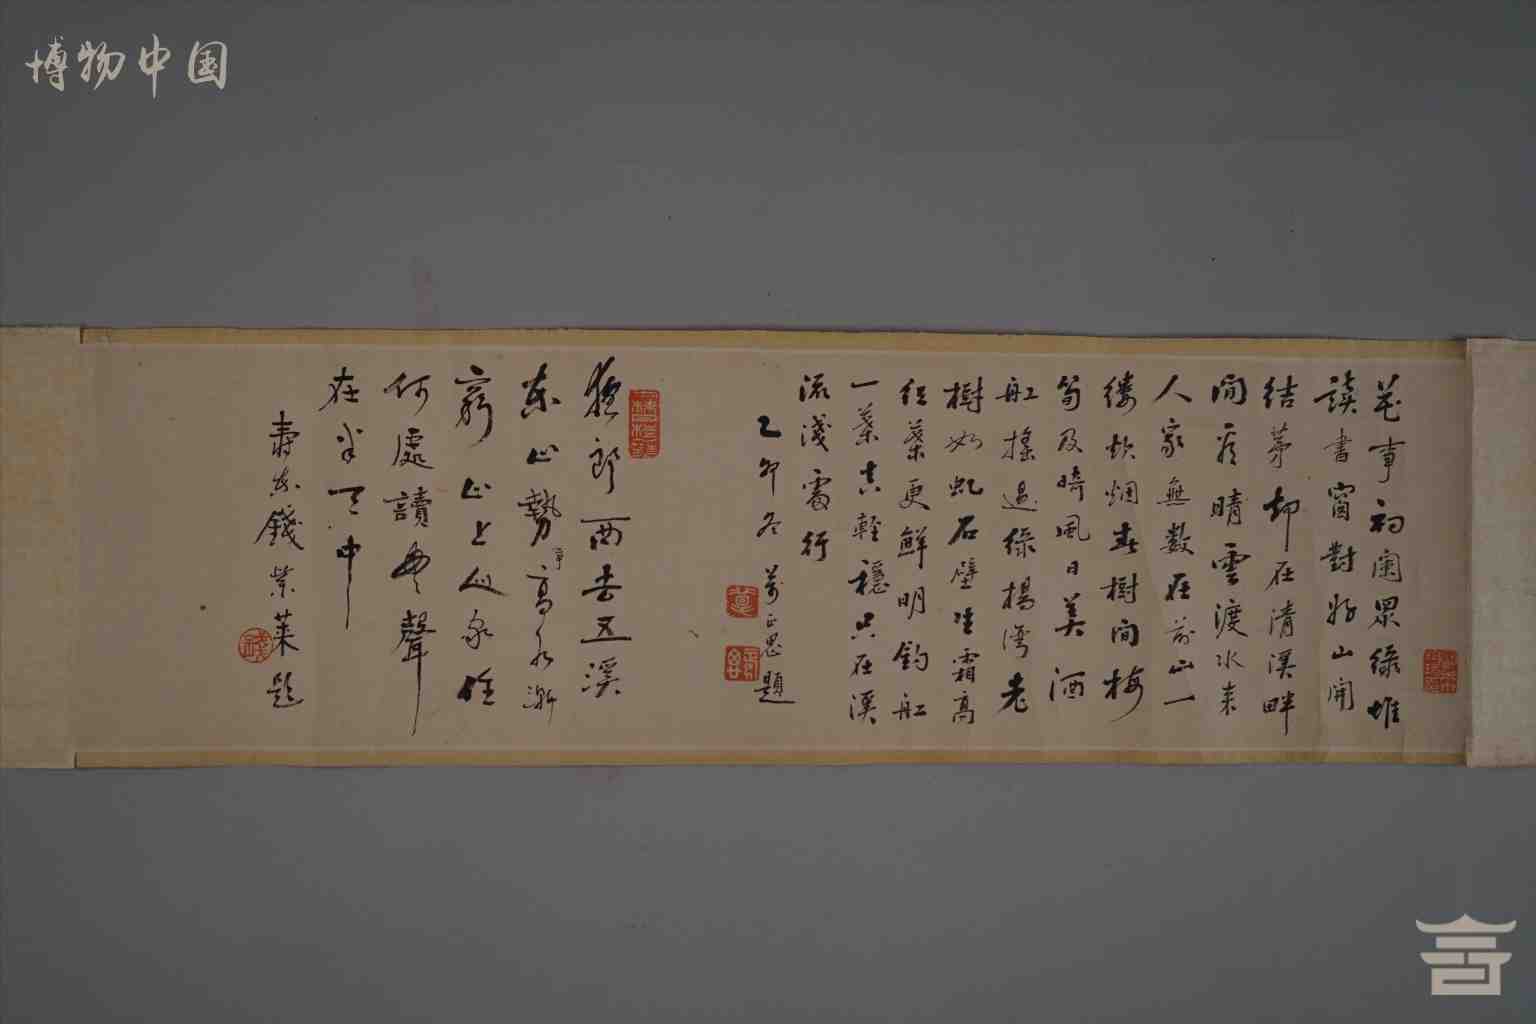 博物中国
花事初闌眾綠堆
讀書窗對好山開
結茅却在清溪畔
間看晴雲渡水來
人家無數在前山一
縷炊烟出樹間梅
筍及時風日美酒
舡搖過綠楊灣老
樹如虬石壁生霜高
紅葉更鮮明釣舡
一葉真輕穩只在溪
流淺處行
乙卯冬 萬正思題
夜郎西去五溪
東山勢爭高水漸
窮山上人家住
何處讀書聲
在半天中
壽東錢紫萊題